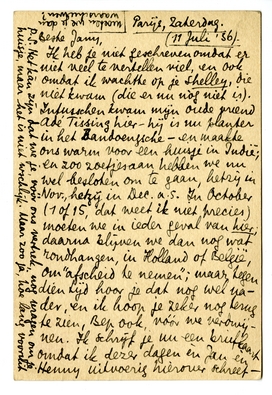 Parijs, Zaterdag.
(11 Juli '36)
Beste Jany,
Ik heb je niet geschreven omdat er
niet veel te vertellen viel, en ook
omdat ik wachtte op je Shelley, die
niet kwam (die er nu nog niet is).
Intusschen kwam mijn oude vriend
Adé Tissing hier - hij is nu planter
in het Bandoengsche - en maakte
ons warm voor een huisje in Indië;
en zoo zoetjesaan hebben we nu
wel besloten om te gaan, hetzij in
Nov., hetzij in Dec. a.s. In October
(1 of 15, dat weet ik niet precies)
moeten we in ieder geval van hier;
daarna blijven we dan nog wat
rondhangen, in Holland of België,
om "afscheid te nemen"; maar tegen
dien tijd hoor je dat nog wel na-
der, en ik hoop je zeker nog terug
te zien, Bep ook, vóór we verdwij-
nen. Ik schrijf je nu een briefkaart
omdat ik dezer dagen en Jan en
Henny uitvoerig hierover schreef -
P.S. Het kan zijn dat we je vóór ons vertrek nog vragen om je
huisje, maar het is niet vroolijk. Maar zoo ja, hoe lang vooruit
moeten we je dan
waarschuwen?